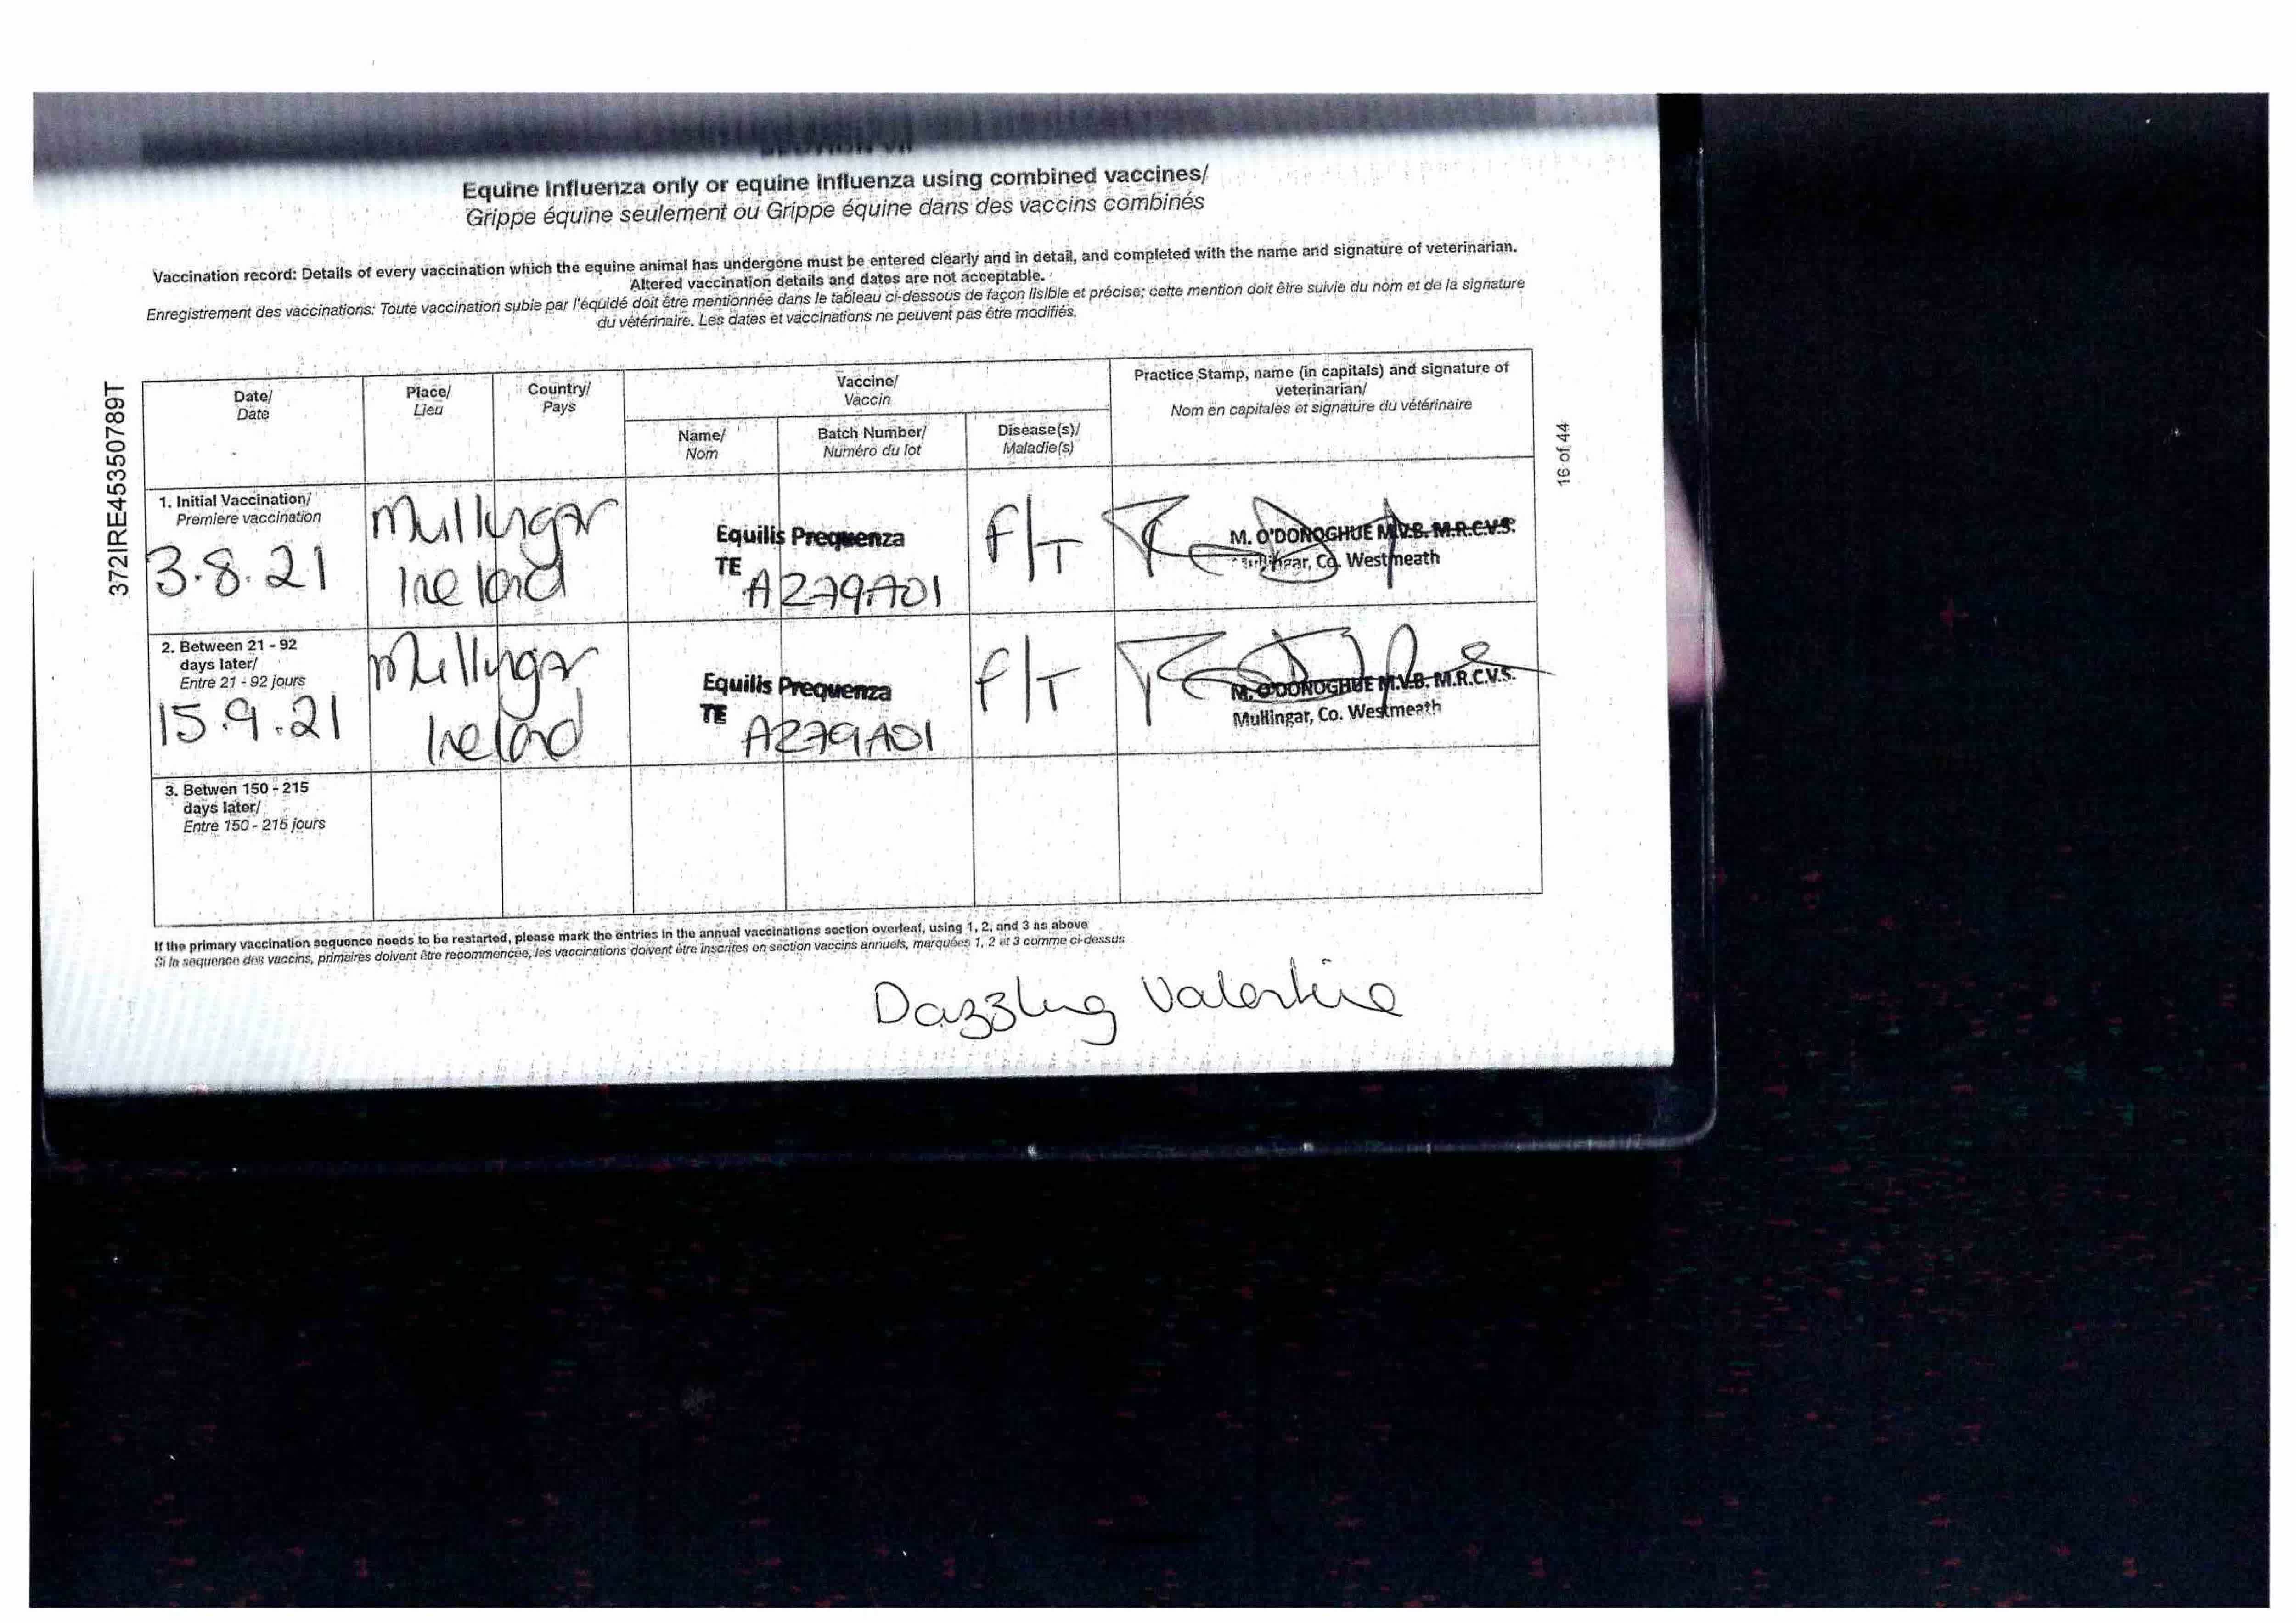 Equine Influenza only or equine influenza using combined vaccines/
Grippe équine seulement ou Grippe équine dans des vaccins combinés
Vaccination record: Details of every vaccination which the equine animal has undergone must be entered clearly and in detail, and completed with the name and signature of veterinarian.
Altered vaccination details and dates are not acceptable.
Enregistrement des vaccinations: Toute vaccination subie par l'équidé doit être mentionnée dans le tableau ci-dessous de façon lisible et précise; cette mention doit être suivie du nom et de la signature
du vétérinaire. Les dates et vaccinations ne peuvent pas être modifiés.
372IRE45350789T
16 of 44
Date/
Date
Place/
Lieu
Country/
Pays
Vaccine/
Vaccin
Name/
Nom
Batch Number/
Numéro du lot
Disease(s)/
Maladie(s)
Practice Stamp, name (in capitals) and signature of
veterinarian/
Nom en capitales et signature du vétérinaire
1. Initial Vaccination/
Premiere vaccination
3.8.21
Mullingar
Ireland
Equilis Prequenza
TE
A279A01
F/T
M. O'DONOGHUE M.V.B. M.R.C.V.S.
Mullingar, Co. Westmeath
2. Between 21 - 92
days later/
Entre 21 - 92 jours
15.9.21
Mullingar
Ireland
Equilis Prequenza
TE
A279A01
F/T
M. O'DONOGHUE M.V.B. M.R.C.V.S.
Mullingar, Co. Westmeath
3. Betwen 150 - 215
days later/
Entre 150 - 215 jours
If the primary vaccination sequence needs to be restarted, please mark the entries in the annual vaccinations section overleaf, using 1, 2, and 3 as above
Si la sequence des vaccins, primaires doivent être recommencée, les vaccinations doivent être inscrites en section vaccins annuels, marquées 1, 2 et 3 comme ci-dessus
Dazzling Valentine